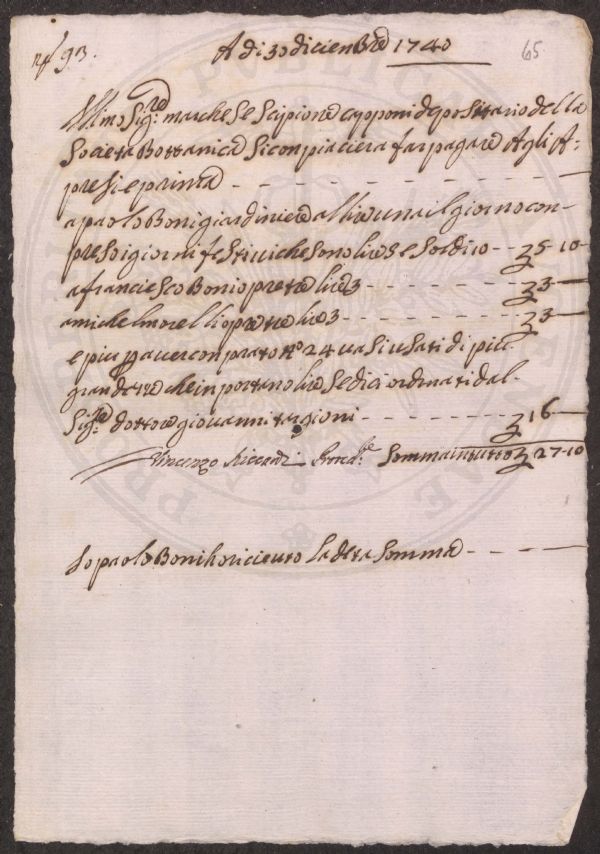 nº 93.
A di 30 dicienBre 1740
65
Illmo Sigre: marchese Scipione capponi depositario della
Societa Bottanica Si conpiaciera far pagare Agli A-
presi e prima
a paolo Boni giardiniere a lire una il giorno con-
preso i giorni festivi che sono lire 5 e soldi 10 - 5-10-
a franciesco Boni opre tre lire 3 3 -
a michel morelli opre tre lire 3 3 -
e piu p aver conprato nº 24 vasi usati di piu
grandezze che in portano lire sedici ordinati dal
Sigre: dottore giovanni targioni 16 -
Vincenzo Riccardi Somma in tutto 27-10
Io paolo Boni ho ricieuto la deta Somma
PVBLICAE